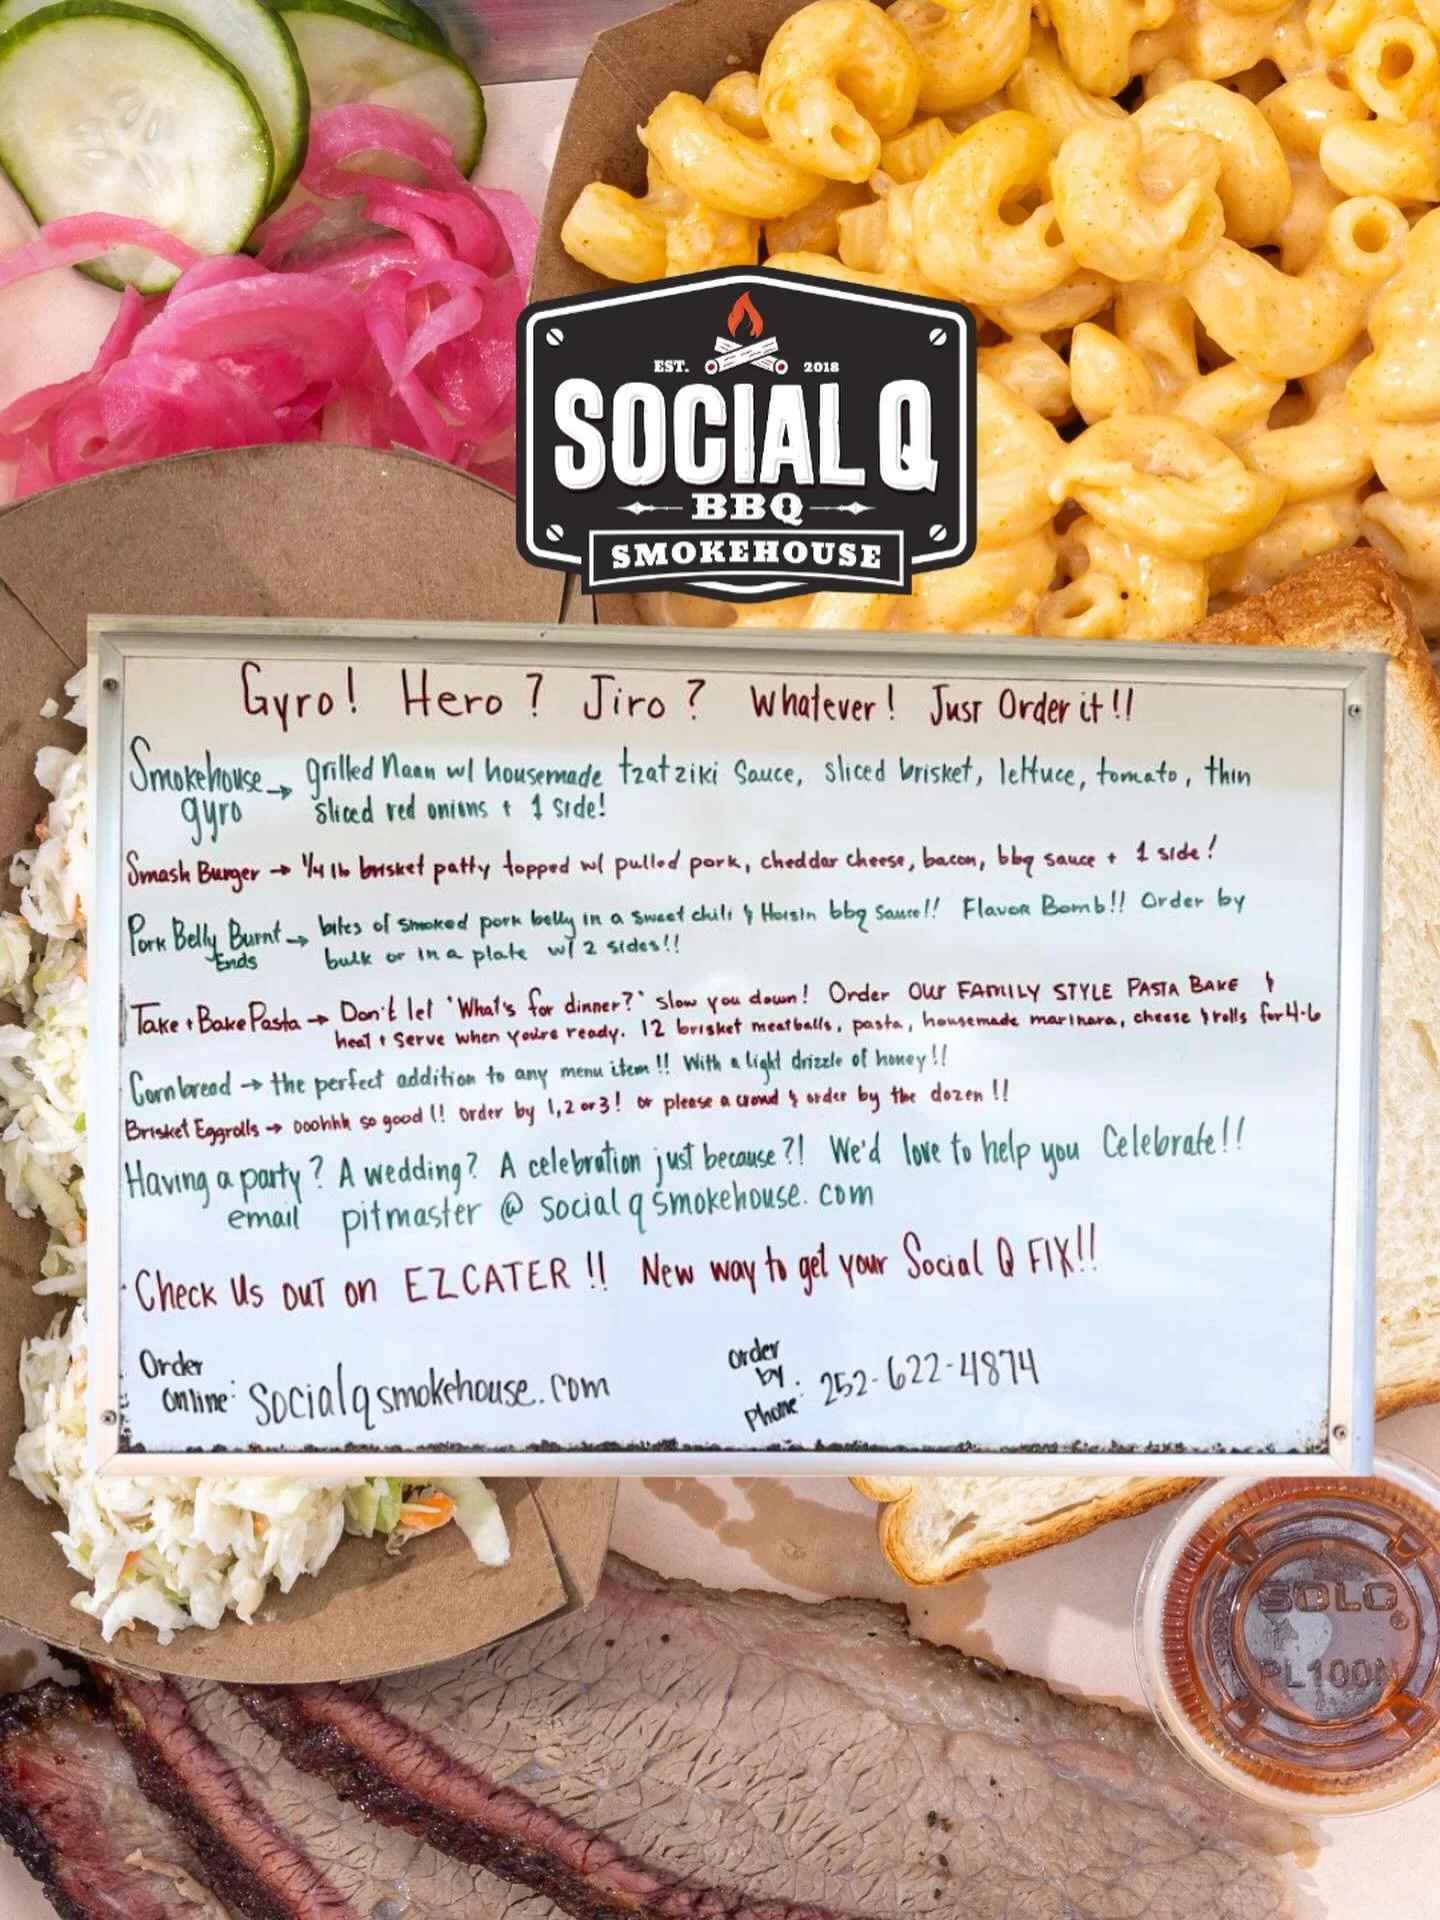 EST. 2018
SOCIAL Q
BBQ
SMOKEHOUSE
Gyro! Hero? Jiro? Whatever! Just Order it!!
Smokehouse gyro → grilled Naan w/ housemade tzatziki Sauce, sliced brisket, lettuce, tomato, thin
sliced red onions + 1 side!
Smash Burger → 1/4 lb brisket patty topped w/ pulled pork, cheddar cheese, bacon, bbq sauce + 1 side!
Pork Belly Burnt Ends → bites of smoked pork belly in a sweet chili & Hoisin bbq Sauce!! Flavor Bomb!! Order by
bulk or in a plate w/ 2 sides!!
Take + Bake Pasta → Don't let "What's for dinner?" slow you down! Order OUR FAMILY STYLE PASTA BAKE &
heat + Serve when you're ready. 12 brisket meatballs, pasta, housemade marinara, cheese & rolls for 4-6
Cornbread → the perfect addition to any menu item!! With a light drizzle of honey!!
Brisket Eggrolls → ooohhh so good!! order by 1, 2 or 3! or please a crowd & order by the dozen!!
Having a party? A wedding? A celebration just because?! We'd love to help you Celebrate!!
email pitmaster @ socialqsmokehouse.com
Check Us out on EZCATER!! New way to get your Social Q FIX!!
Order Online: Socialqsmokehouse.com
Order by Phone: 252-622-4874
SOLO
PL100N